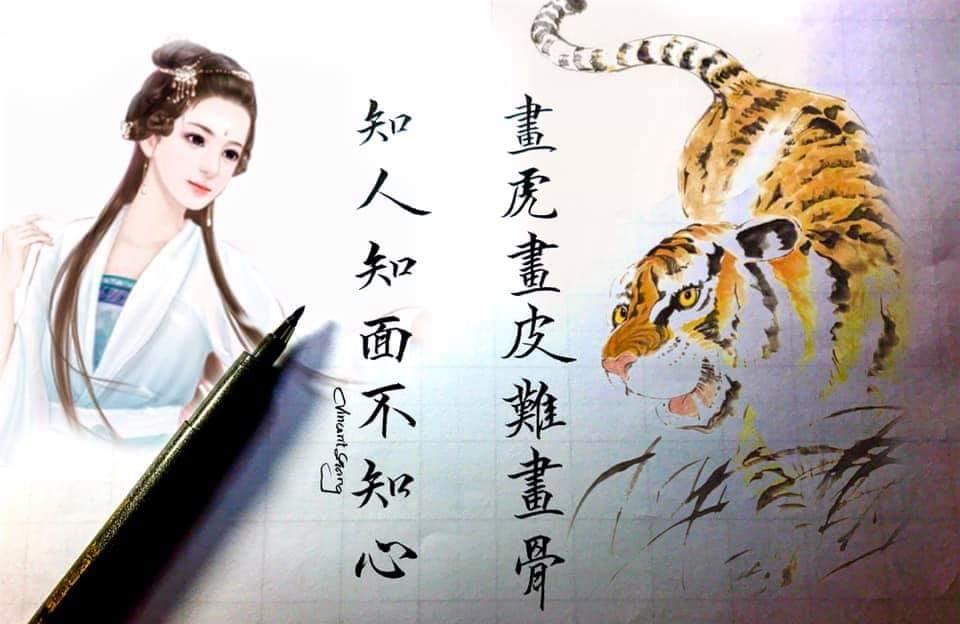 畫虎畫皮難畫骨
知人知面不知心